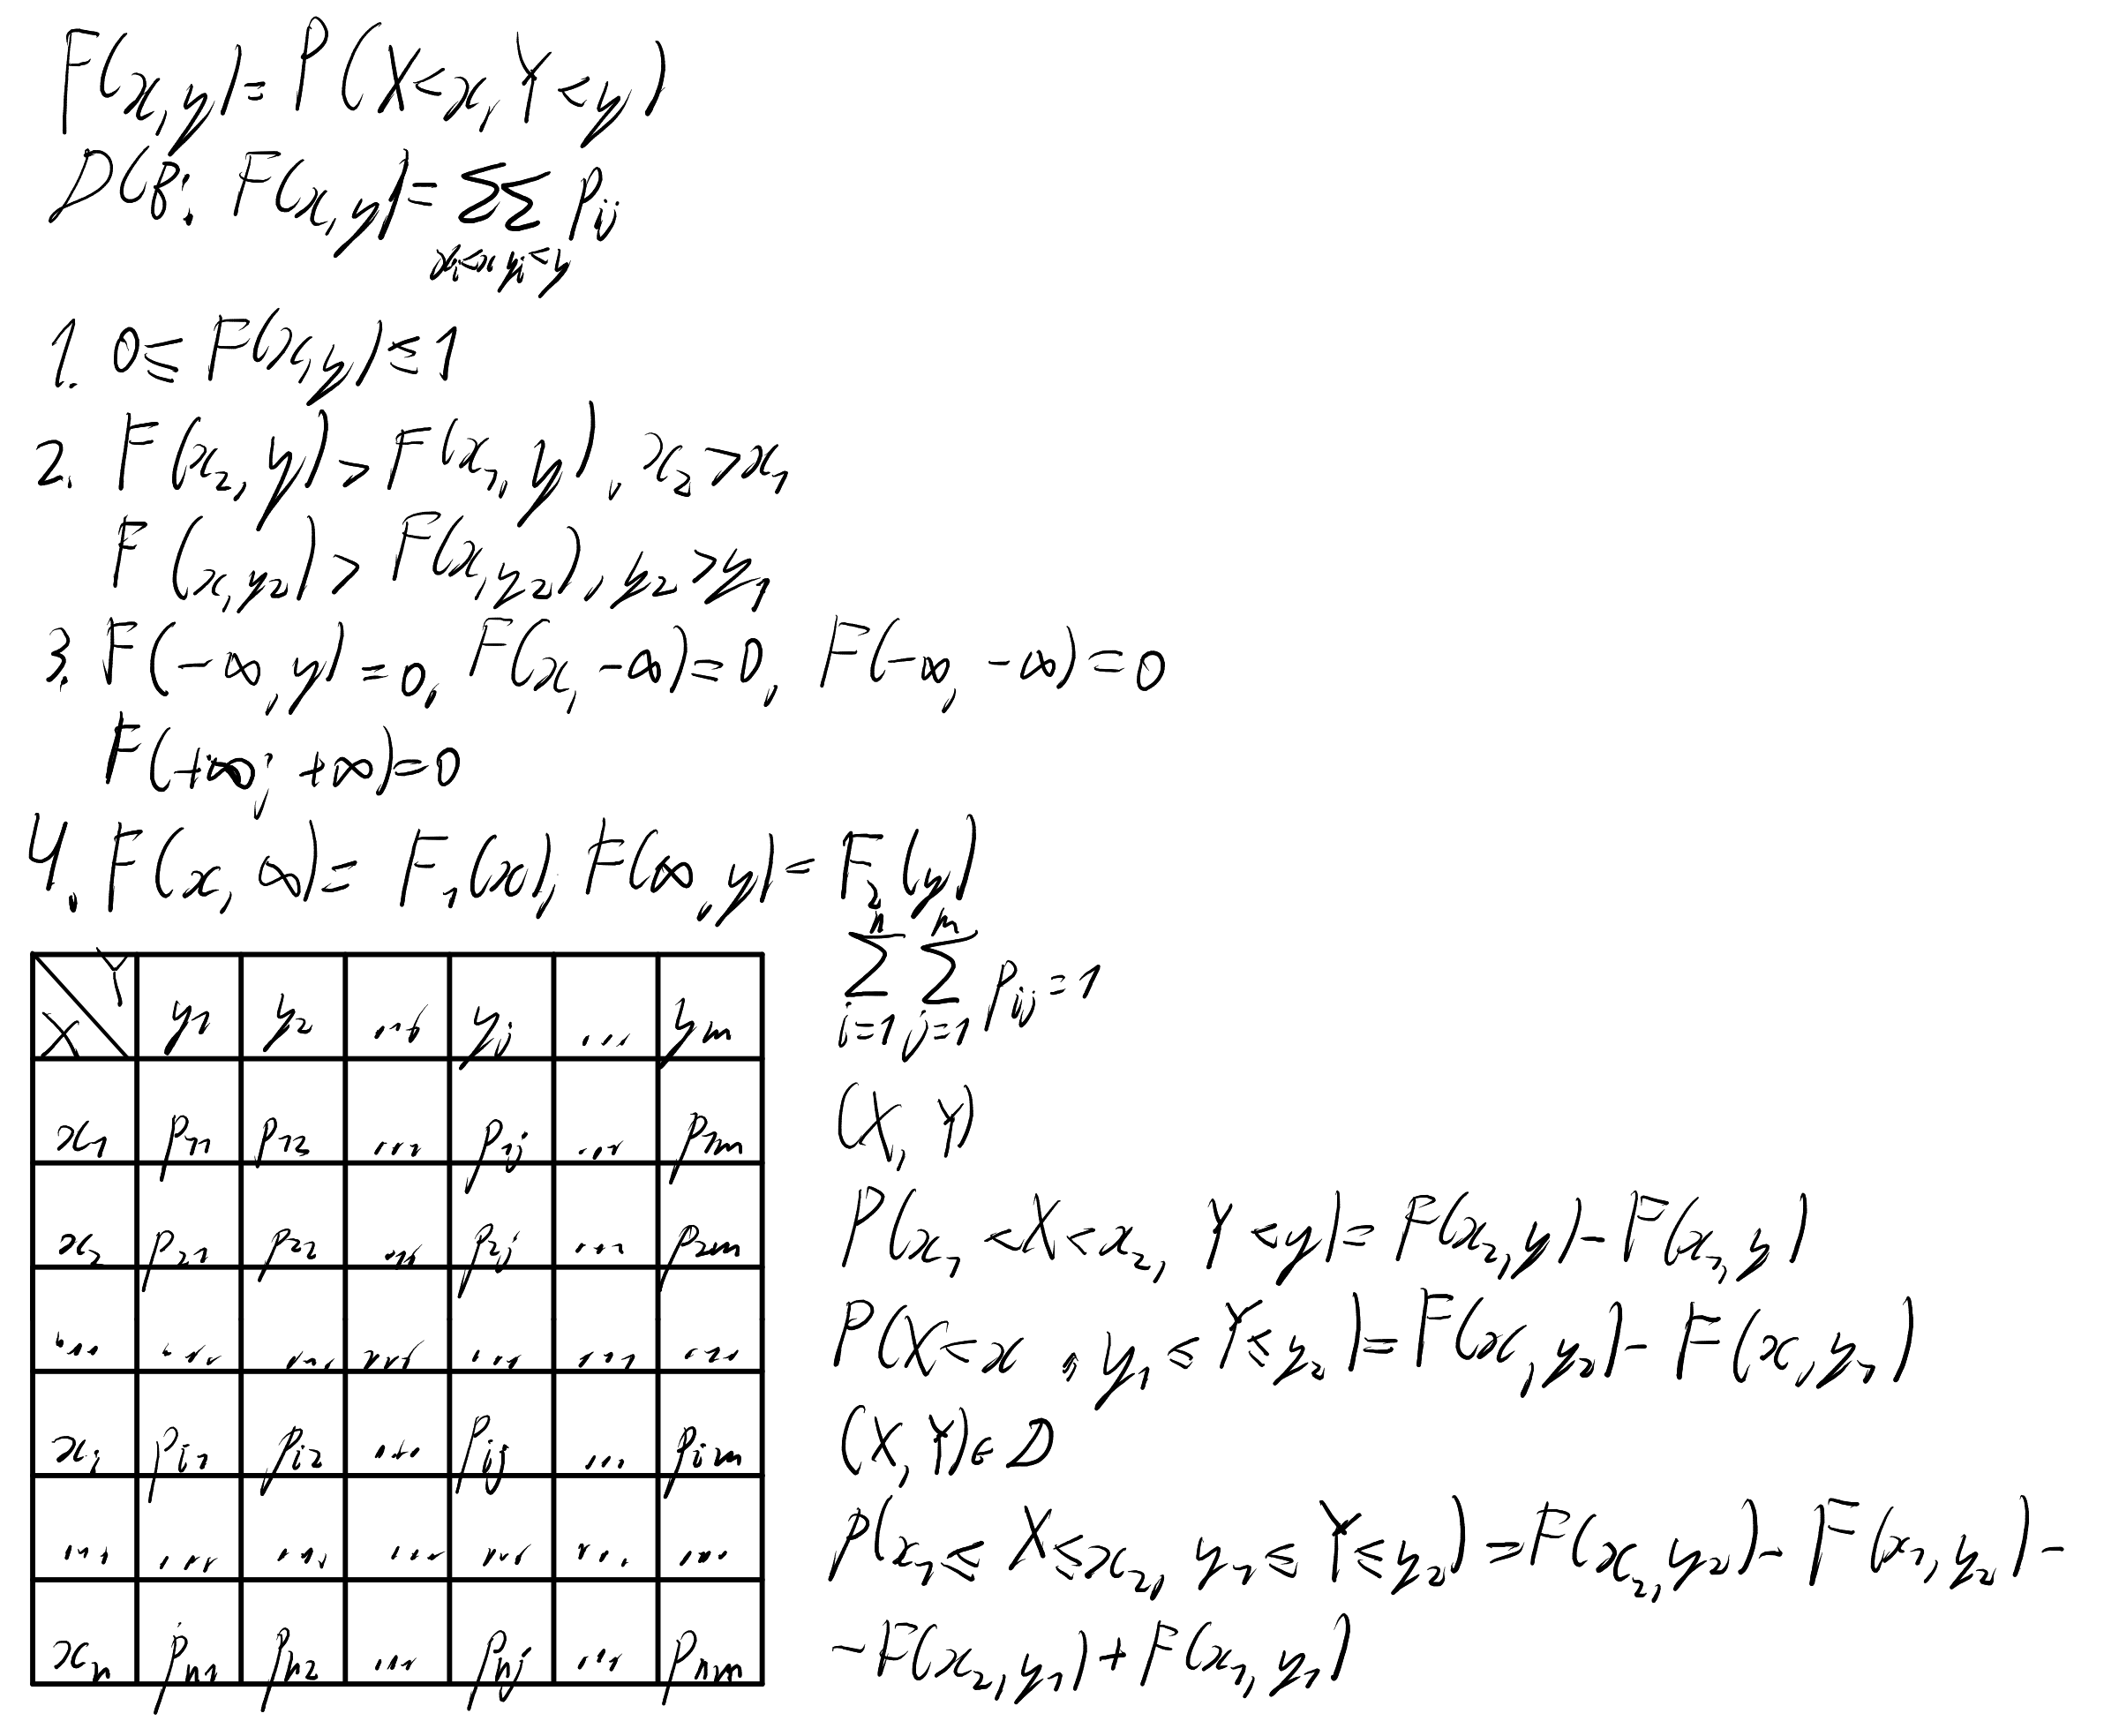 F(x,y)=P(X<x, Y<y)
ДСВ: F(x,y)=ΣΣ pij
xi<x yj<y
1. 0≤F(x,y)≤1
2. F(x₂,y)>F(x₁,y), x₂>x₁
F(x,y₂)>F(x,y₂), y₂>y₁
3. F(-∞,y)=0, F(x,-∞)=0, F(-∞,-∞)=0
F(+∞; +∞)=0
4. F(x,∞)=F₁(x), F(∞,y)=F₂(y)
X Y y₁ y₂ ... yj ... ym
x₁ p₁₁ p₁₂ ... p₁j ... p₁m
x₂ p₂₁ p₂₂ ... p₂j ... p₂m
... ... ... ... ... ... ...
xi pi₁ pi₂ ... pij ... pim
... ... ... ... ... ... ...
xn pn₁ pn₂ ... pnj ... pnm
n m
ΣΣ pij=1
i=1 j=1
(X, Y)
P(x₁<X<x₂, Y<y)=F(x₂,y)-F(x₁,y)
P(X<x, y₁≤Y≤y₂)=F(x,y₂)-F(x,y₁)
(X,Y)∈D
P(x₁≤X≤x₂, y₁≤Y≤y₂)=F(x₂,y₂)-F(x₁,y₂)-
-F(x₂,y₁)+F(x₁,y₁)